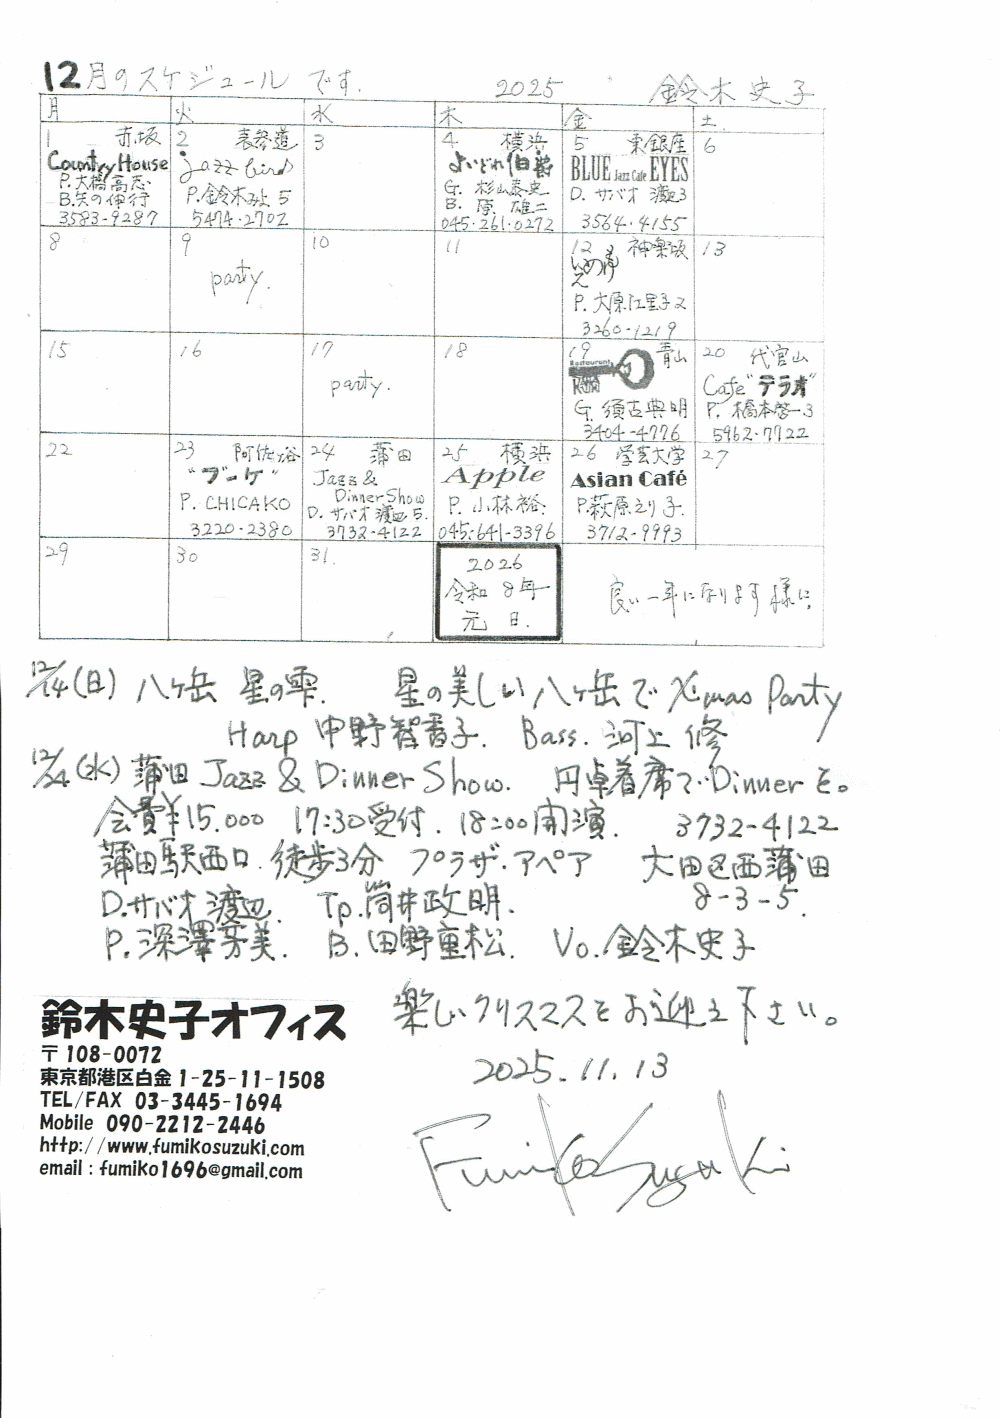 12月のスケジュールです. 2025 鈴木史子
月 火 水 木 金 土
1 赤坂
Country House
P.大橋高志
B.矢の伸行
3583-9287
2 表参道
jazz bird
P.鈴木みよ 5
5474-2702
3
4 横浜
よいどれ伯爵
G. 杉山泰史
B. 原 雄二
045-261-0272
5 東銀座
BLUE Jazz Cafe EYES
D. サバオ 渡辺 3
3564-4155
6
8
9
party.
10
11
12 神楽坂
P. 大原江里子 2
3260-1219
13
15
16
17
party.
18
19 青山
Restaurant
G. 須古典明
3404-4776
20 代官山
Cafe "テラオ"
P. 橋本啓一 3
5962-7722
22
23 阿佐ヶ谷
"ブーケ"
P. CHICAKO
3220-2380
24 蒲田
Jazz &
Dinner Show
D. サバオ 渡辺 5.
3732-4122
25 横浜
Apple
P. 小林裕.
045-641-3396
26 学芸大学
Asian Café
P.萩原えり子.
3712-9993
27
29
30
31.
2026
令和 8年
元 日.
良い一年になります様に.
12/14(日) 八ヶ岳 星の雫. 星の美しい八ヶ岳で X'mas Party
Harp 中野智香子. Bass. 河上 修
12/24(水) 蒲田 Jazz & Dinner Show. 円卓着席で Dinner を。
会費¥15.000 17:30受付. 18:00開演. 3732-4122
蒲田駅西口.徒歩3分 プラザ・アペア 大田区西蒲田
8-3-5.
D.サバオ渡辺. Tp.筒井政明.
P.深澤芳美. B.田野重松. Vo.鈴木史子
楽しいクリスマスをお迎え下さい。
2025.11.13
Fumiko Suzuki
鈴木史子オフィス
〒108-0072
東京都港区白金1-25-11-1508
TEL/FAX 03-3445-1694
Mobile 090-2212-2446
http://www.fumikosuzuki.com
email : fumiko1696@gmail.com